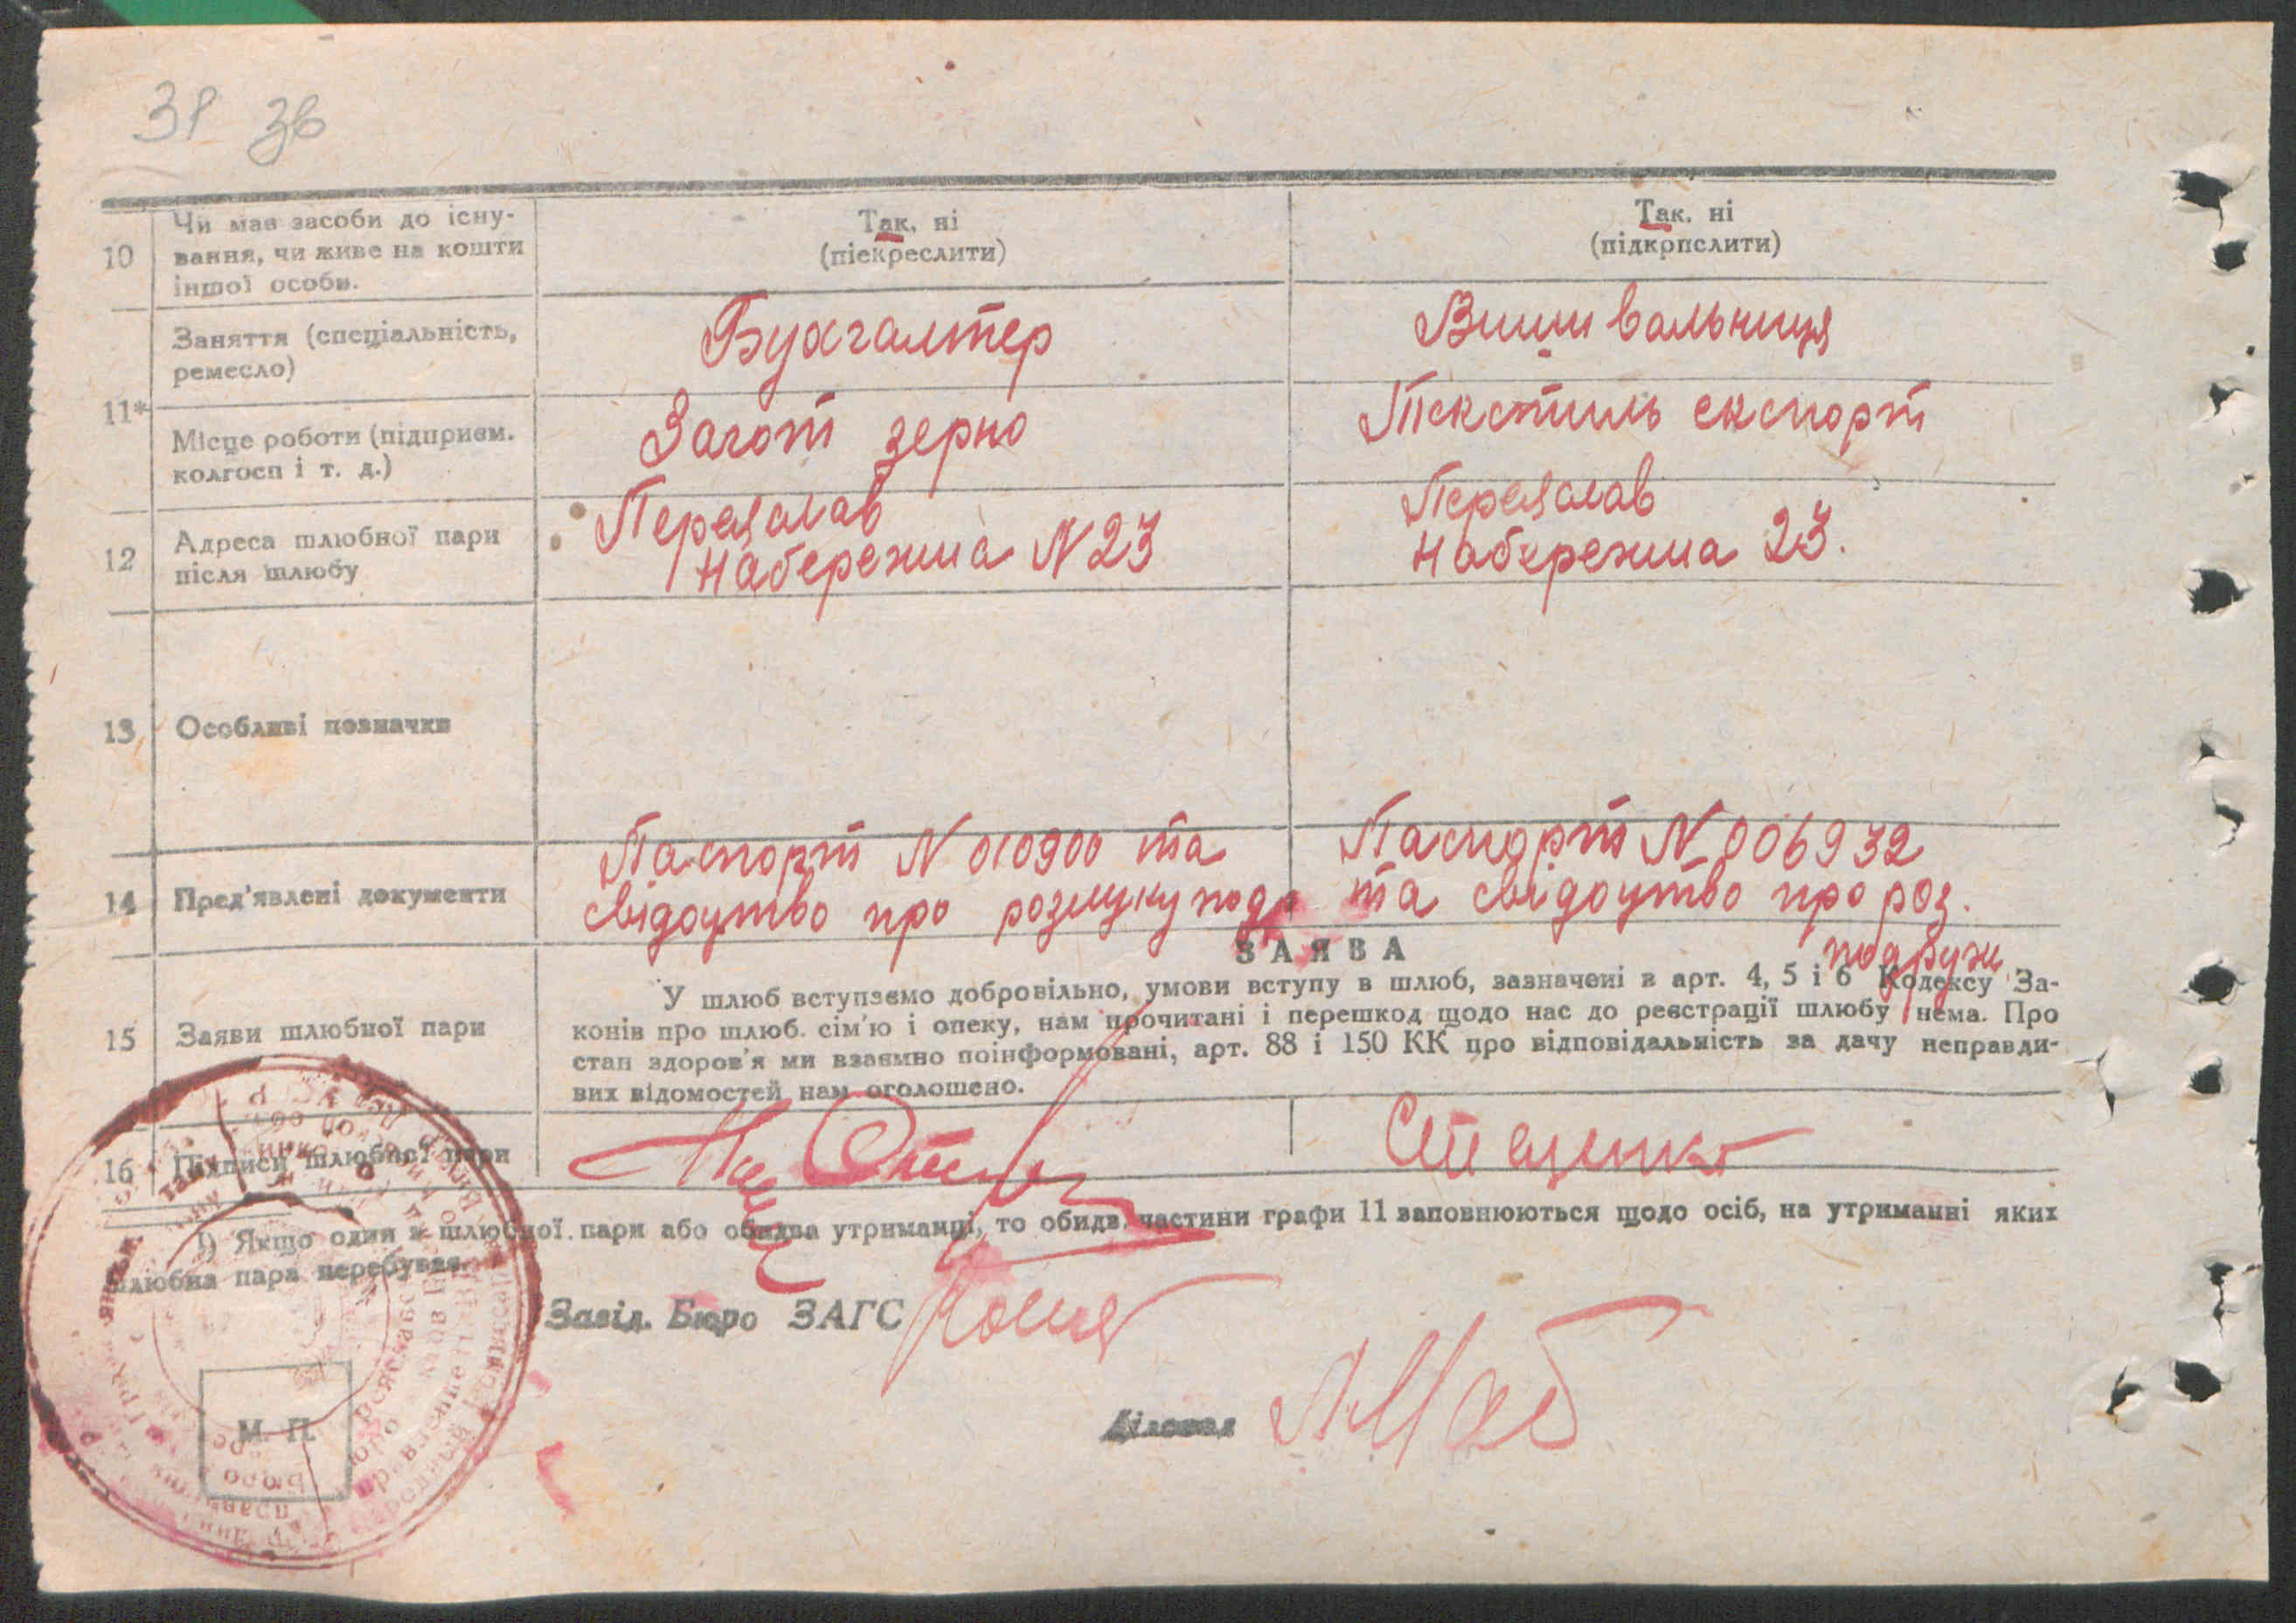 31 зв
10
Чи має засоби до існу-
вання, чи живе на кошти
іншої особи.
Так, ні
(піекреслити)
Так, ні
(підкрпслити)
11*
Заняття (спеціальність,
ремесло)
Бухгалтер
Вишивальниця
Місце роботи (підприєм.
колгосп і т. д.)
Загот зерно
Текстиль експорт
12
Адреса шлюбної пари
після шлюбу
Переяслав
Набережна N 23
Переяслав
Набережна 23.
13
Особливі позначки
14
Пред'явлені документи
Паспорт N 010900 та
свідоцтво про розлуку подр
Паспорт N 006932
та свідоцтво про роз.
подружж
ЗАЯВА
15
Заяви шлюбної пари
У шлюб вступаємо добровільно, умови вступу в шлюб, зазначені в арт. 4, 5 і 6 Кодексу За-
конів про шлюб. сім'ю і опеку, нам прочитані і перешкод щодо нас до реєстрації шлюбу нема. Про
стан здоров'я ми взаємно поінформовані, арт. 88 і 150 КК про відповідальність за дачу неправди-
вих відомостей нам оголошено.
16
Підписи шлюбної пари
Стаценко
1) Якщо один з шлюбної пари або обидва утриманці, то обидв. частини графи 11 заповнюються щодо осіб, на утриманні яких
шлюбна пара перебуває.
Завід. Бюро ЗАГС
Діловод
М. П.